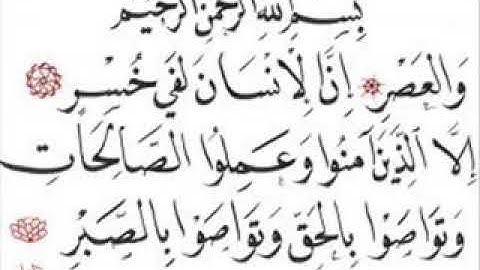 بِسْمِ اللهِ الرَّحْمٰنِ الرَّحِيمِ
وَالْعَصْرِ إِنَّ الْإِنْسَانَ لَفِي خُسْرٍ
إِلَّا الَّذِينَ آمَنُوا وَعَمِلُوا الصَّالِحَاتِ
وَتَوَاصَوْا بِالْحَقِّ وَتَوَاصَوْا بِالصَّبْرِ